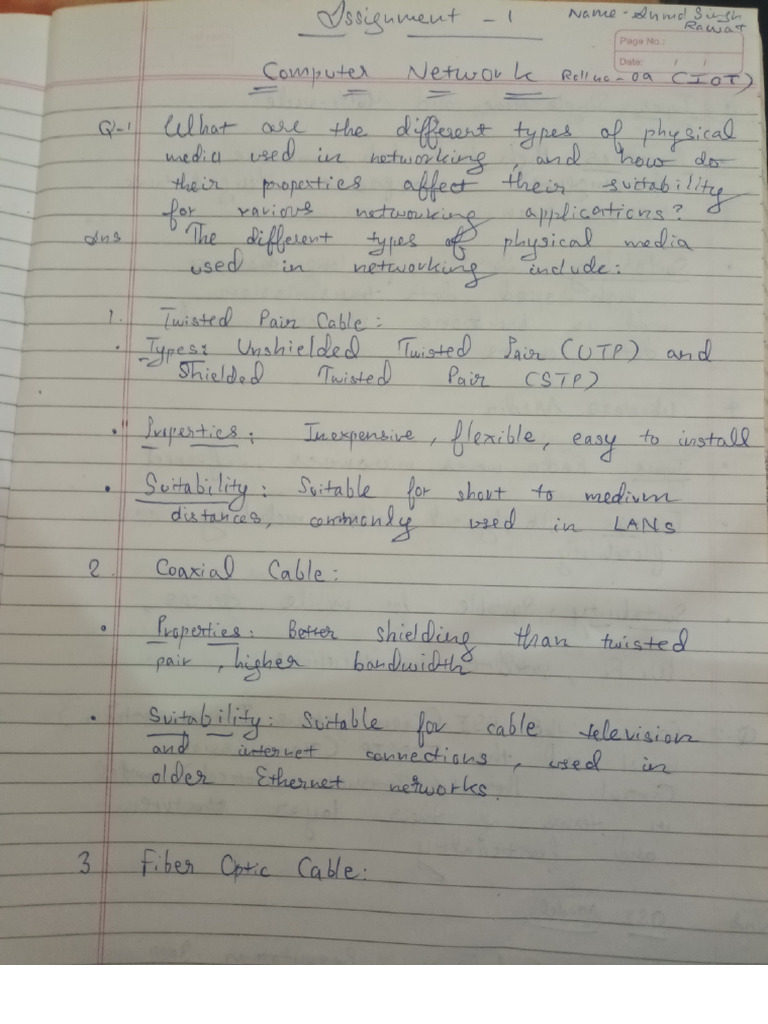 Assignment - 1
Name - Anmol Singh
Rawat
Page No.:
Date: / /
Computer Network Roll no - 09 (IOT)
Q-1 What are the different types of physical
media used in networking, and how do
their properties affect their suitability
for various networking applications?
Ans The different types of physical media
used in networking include:
1. Twisted Pair Cable:
• Types: Unshielded Twisted Pair (UTP) and
Shielded Twisted Pair (STP)
• Properties: Inexpensive, flexible, easy to install
• Suitability: Suitable for short to medium
distances, commonly used in LANs
2. Coaxial Cable:
• Properties: Better shielding than twisted
pair, higher bandwidth
• Suitability: Suitable for cable television
and internet connections, used in
older Ethernet networks.
3 Fiber Optic Cable: